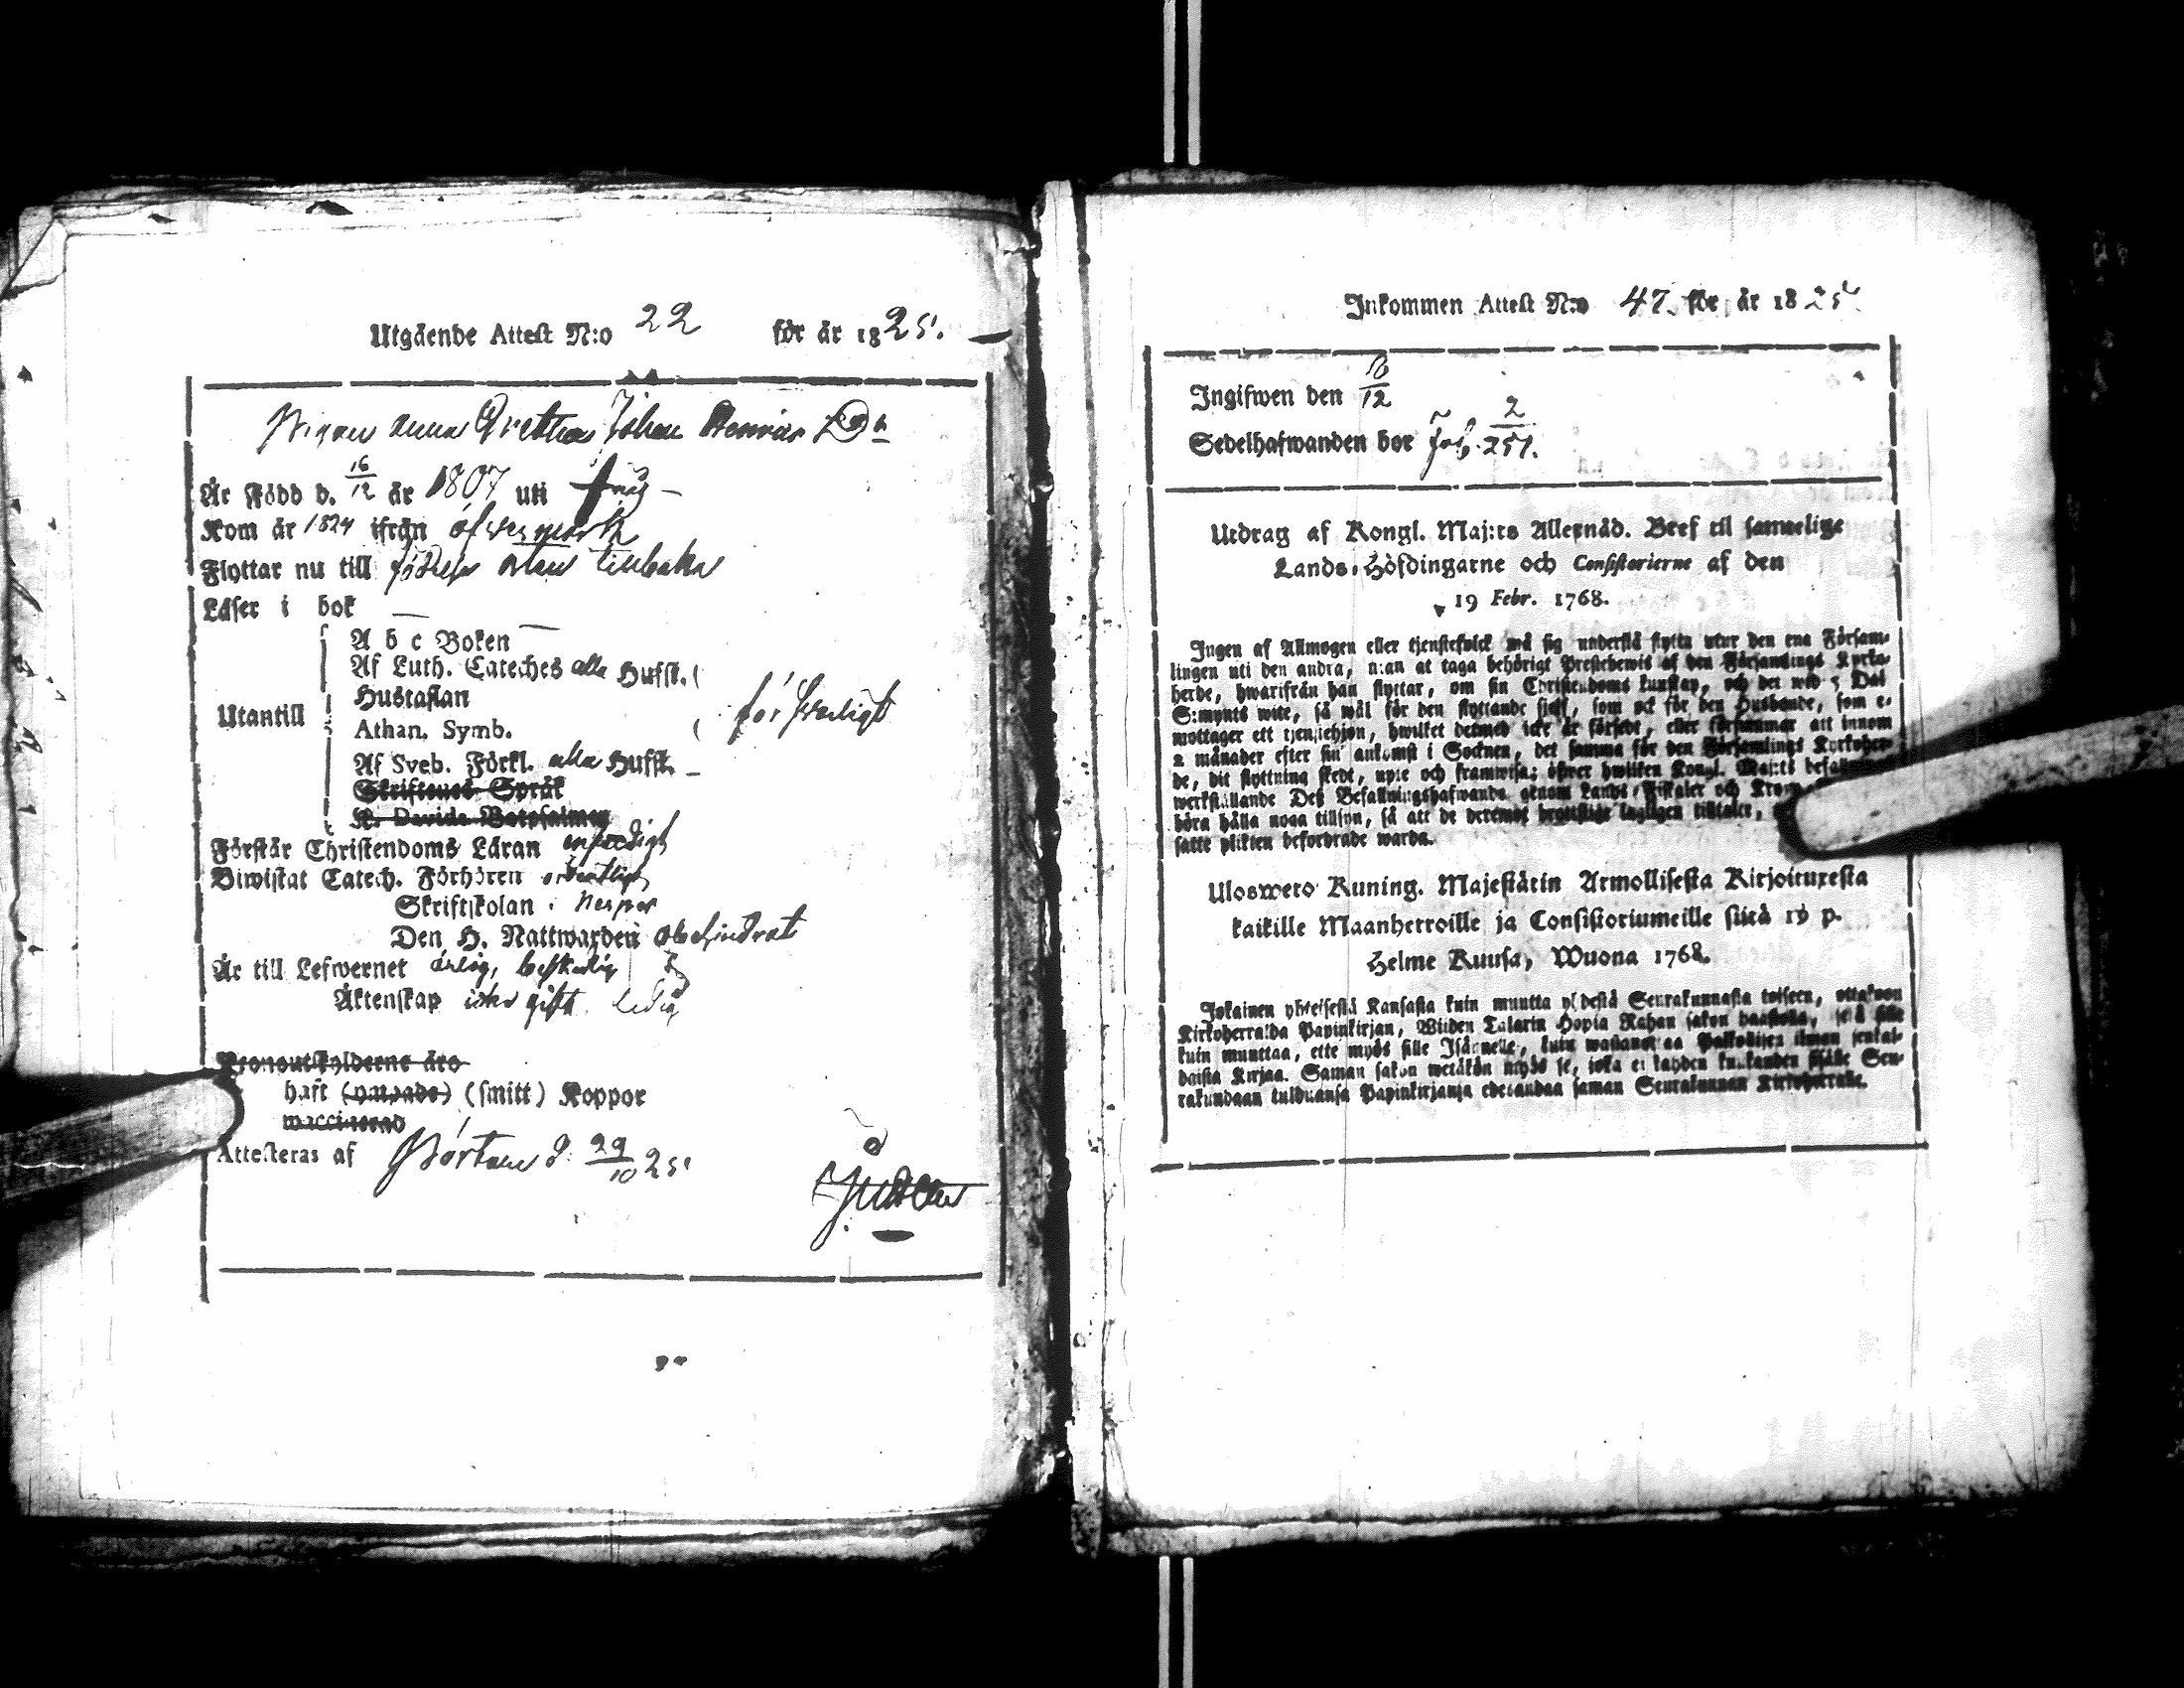 Utgående Attest N:o 22 för år 1825.
Pigan Anna Gretha Johan Henrics Dr
Är Född d. 16/12 år 1807 uti
Kom år 1824 ifrån öfvermark
Flyttar nu till födelse orten tillbaka
Läser i bok —
A b c Boken
Af Luth. Cateches alla Hufst.
Hustaflan
Utantill
Athan. Symb.
försvarligt
Af Sveb. Förkl. alla Hufst.
Skriftenes Språk
K. Davids Botpsalmer
Förstår Christendoms Läran enfaldigt
Biwistat Catech. Förhören ordentligt
Skriftskolan i Nerpes
Den H. Nattwarden obehindrat
Är till Lefwernet ärlig, beskedlig
Äktenskap icke gift ledig
Pronoutskylderne äro
haft (ympade) (smitt) Koppor
waccinerad
Attesteras af Pörtom d. 29/10 25
Inkommen Attest N:o 47. för år 1825.
Ingifwen den 10/12
Sedelhafwanden bor Fol. 2/251.
Utdrag af Kongl. Maj:ts Allernåd. Bref til samtelige
Lands-Höfdingarne och Consistorierne af den
19 Febr. 1768.
Ingen af Allmogen eller tjenstefolck må sig understå flytta utur den ena Försam-
lingen uti den andra, utan at taga behörigt Prestebewis af den Församlings Kyrko-
herde, hwarifrån han flyttar, om sin Christendoms kunskap, och det wid 5 Dal
S:mynts wite, så wäl för den flyttande sielf, som ock för den Husbonde, som e-
mottager ett tjenstehjon, hwilket dermed icke är försedt, eller försummar att innom
2 månader efter sin ankomst i Socknen, det samma för den Församlings Kyrkoher-
de, dit flyttning skedt, upte och framwisa; öfwer hwilken Kongl. Maj:ts befallnings
werkställande Dess Befallningshafwande genom Lands-Fiskaler och
böra hålla noga tillsyn, så att de deremot brottslige lagligen tilltalte,
satte plikten befordrade warda.
Ulosweto Kuning. Majestätin Armollisesta Kirjoituxesta
kaikille Maanherroille ja Consistoriumeille siitä 19 p.
Helme Kuusa, Wuona 1768.
Jokainen yhteisestä Kansasta kuin muutta yhdestä Seurakunnasta toiseen, ottakoon
Kirkoherralda Papinkirjan, Wiiden Talarin Hopia Rahan sakon haastolla, se ä sille
kuin muuttaa, ette myös sille Isännelle, kuin wastanottaa Palkollisen ilman senkal-
daista Kirjaa. Saman sakon wetäkön myös se, joka ei kahden kuukauden sisälle Seu-
rakundaan tulduansa Papinkirjansa edesandaa saman Seurakunnan Kirkoherralle.